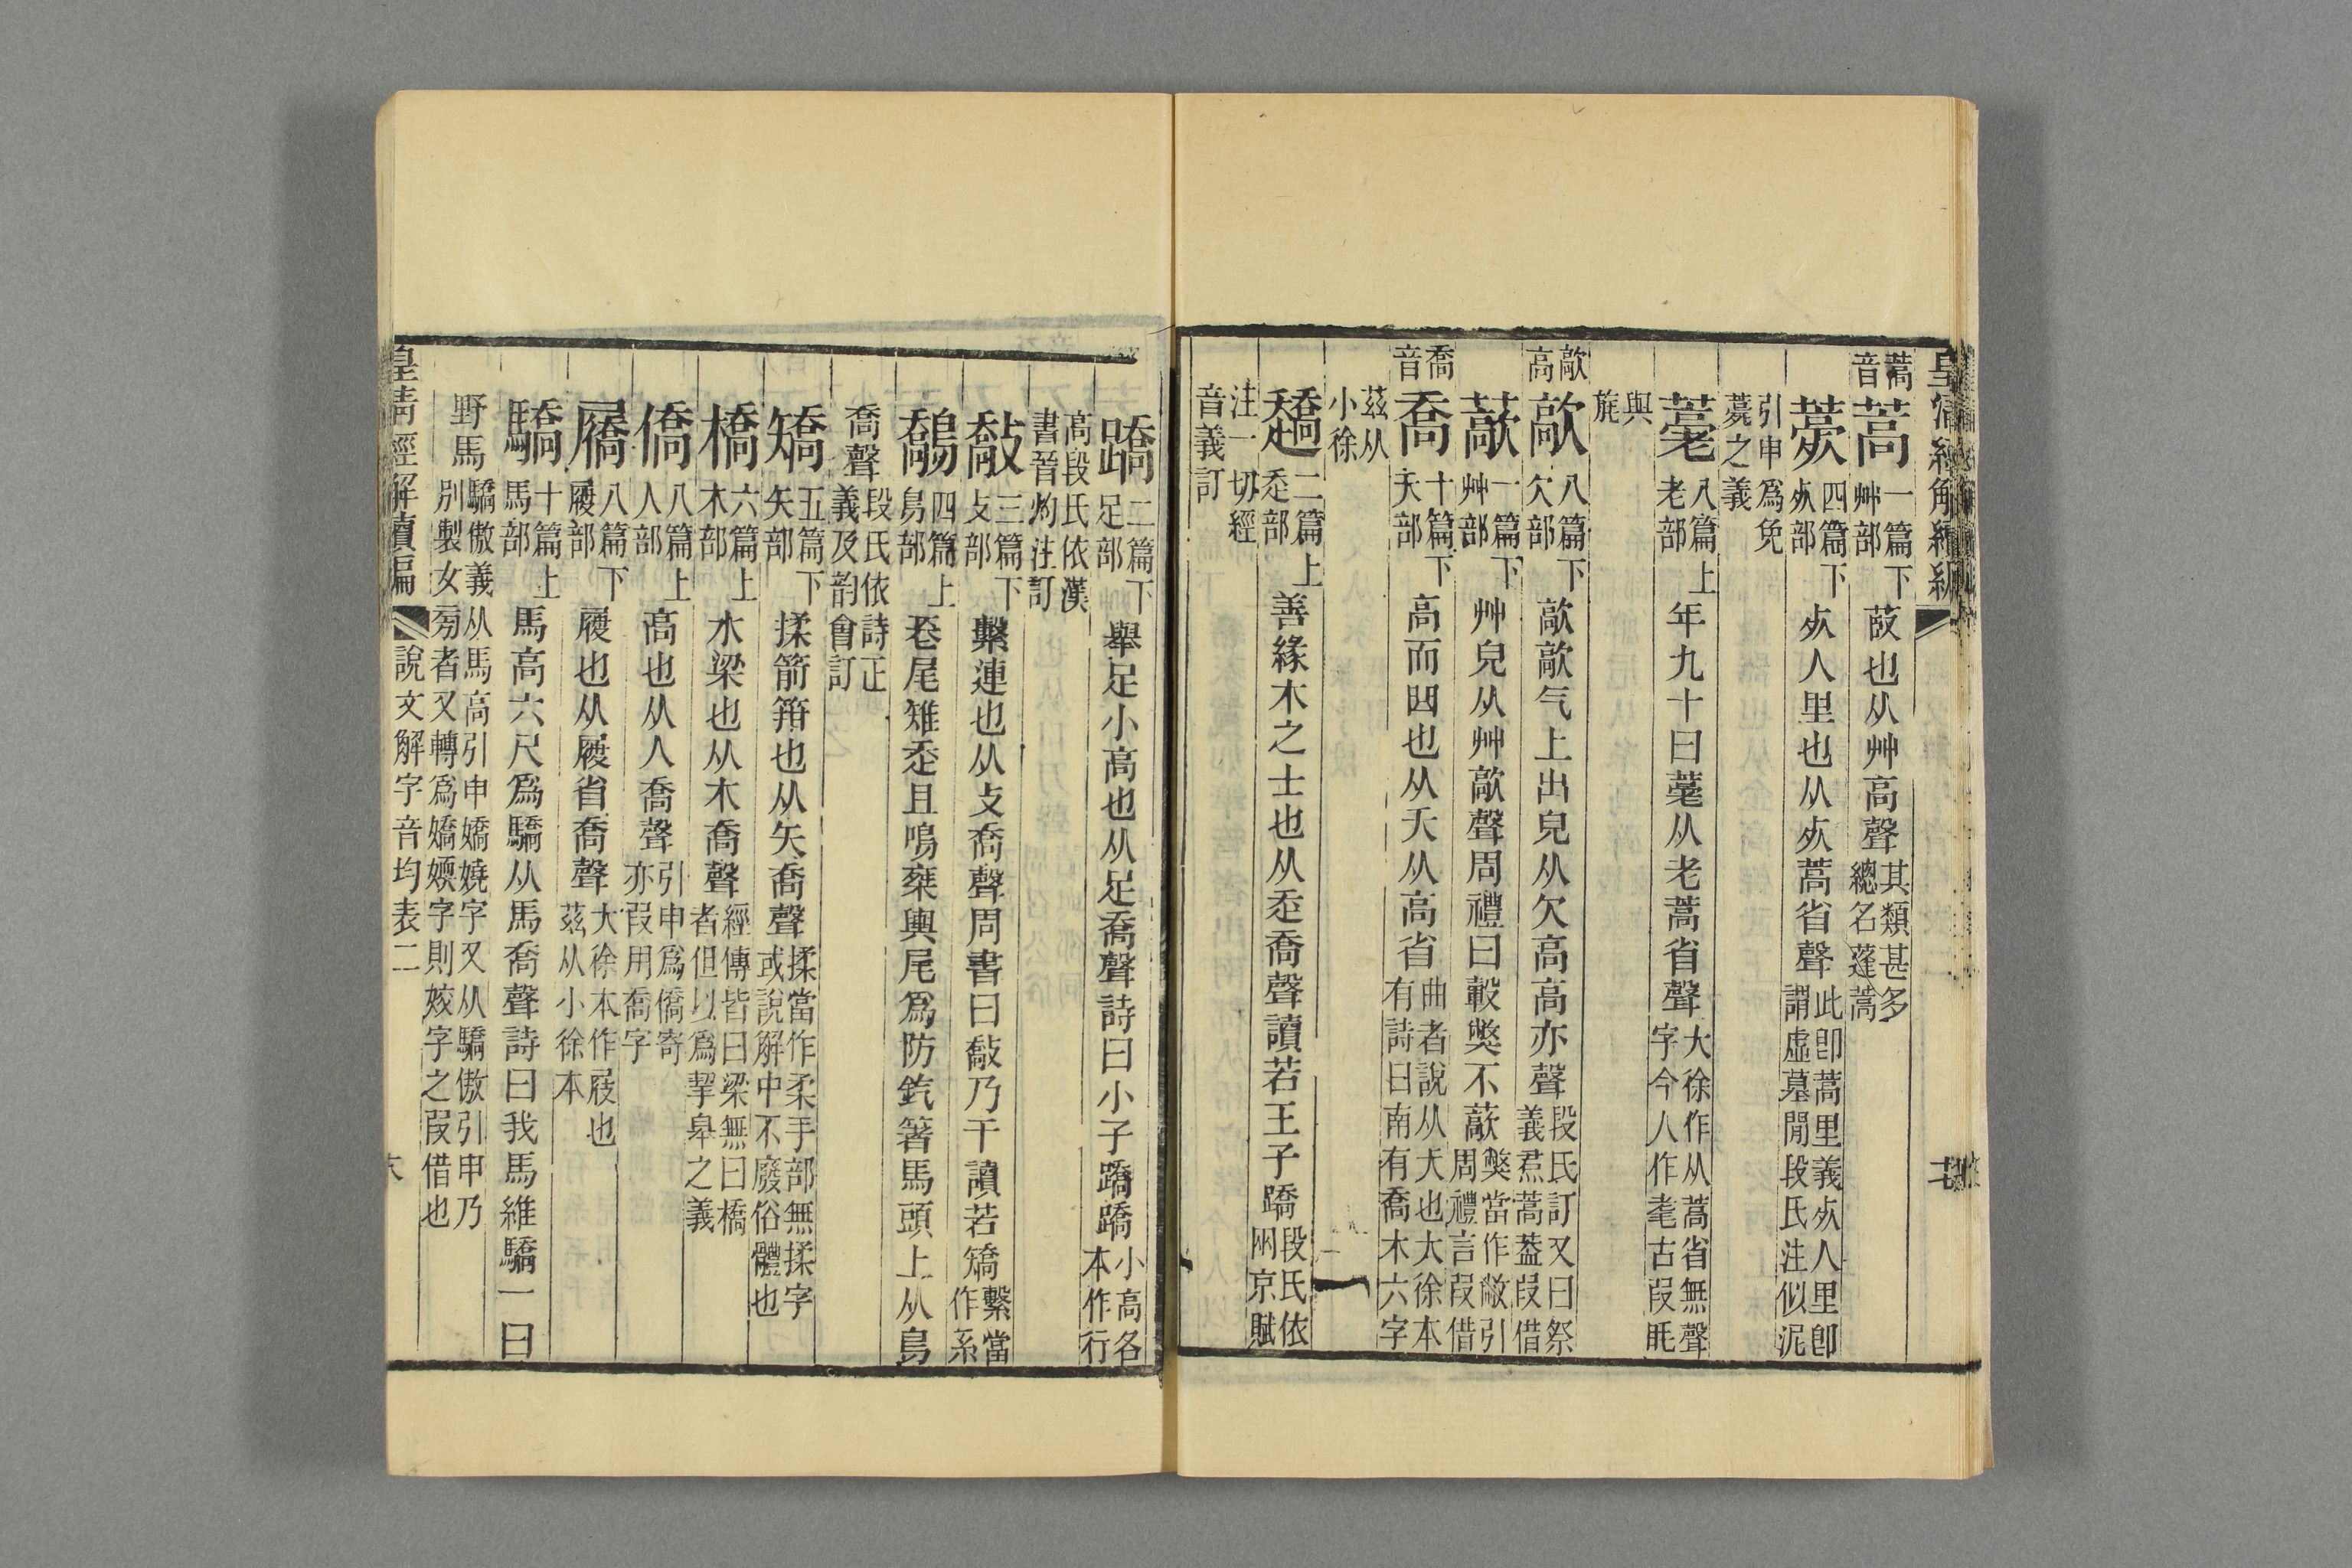 皇清經解續編
蒿音 蒿 一篇下艸部 菣也从艸高聲 其類甚多總名蓬蒿
薨 四篇下𣦵部 𣦵人里也从𣦵蒿省聲 此卽蒿里義𣦵人里卽謂虛墓閒段氏注似泥
引申爲免薨之義
薹 八篇上老部 年九十曰薹从老蒿省聲 大徐作从蒿省無聲字今人作耄古叚眊
與旄
歊高 歊 八篇下欠部 歊歊气上出皃从欠高高亦聲 段氏訂又曰祭義焄蒿葢叚借
藃 一篇下艸部 艸皃从艸歊聲周禮曰轂獘不藃 獘當作敝引周禮言叚借
喬音 喬 十篇下夭部 高而曲也从夭从高省 曲者說从夭也大徐本有詩曰南有喬木六字
茲从小徐
趫 二篇上走部 善緣木之士也从走喬聲讀若王子蹻 段氏依兩京賦
注一切經音義訂
蹻 二篇下足部 舉足小高也从足喬聲詩曰小子蹻蹻 小高各本作行
高段氏依漢書晉灼注訂
敽 三篇下攴部 繫連也从攴喬聲周書曰敽乃干讀若矯 繫當作系
鷮 四篇上鳥部 長尾雉走且鳴乘輿尾爲防釳箸馬頭上从鳥
喬聲 段氏依詩正義及韵會訂
矯 五篇下矢部 揉箭箝也从矢喬聲 揉當作柔手部無揉字或說解中不廢俗體也
橋 六篇上木部 水梁也从木喬聲 經傳皆曰梁無曰橋者但以爲挈皋之義
僑 八篇上人部 高也从人喬聲 引申爲僑寄亦叚用喬字
屩 八篇下履部 履也从履省喬聲 大徐本作屐也茲从小徐本
驕 十篇上馬部 馬高六尺爲驕从馬喬聲詩曰我馬維驕一曰
野馬 驕傲義从馬高引申嬌嬈字又从驕傲引申乃別製女旁者又轉爲嬌嬈字則姣字之叚借也
皇清經解續編 說文解字音均表二